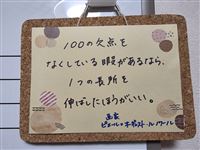 100の欠点を
なくしている暇があるなら、
1つの長所を
伸ばしたほうがいい。
画家
ピエール=オーギュスト・ルノワール